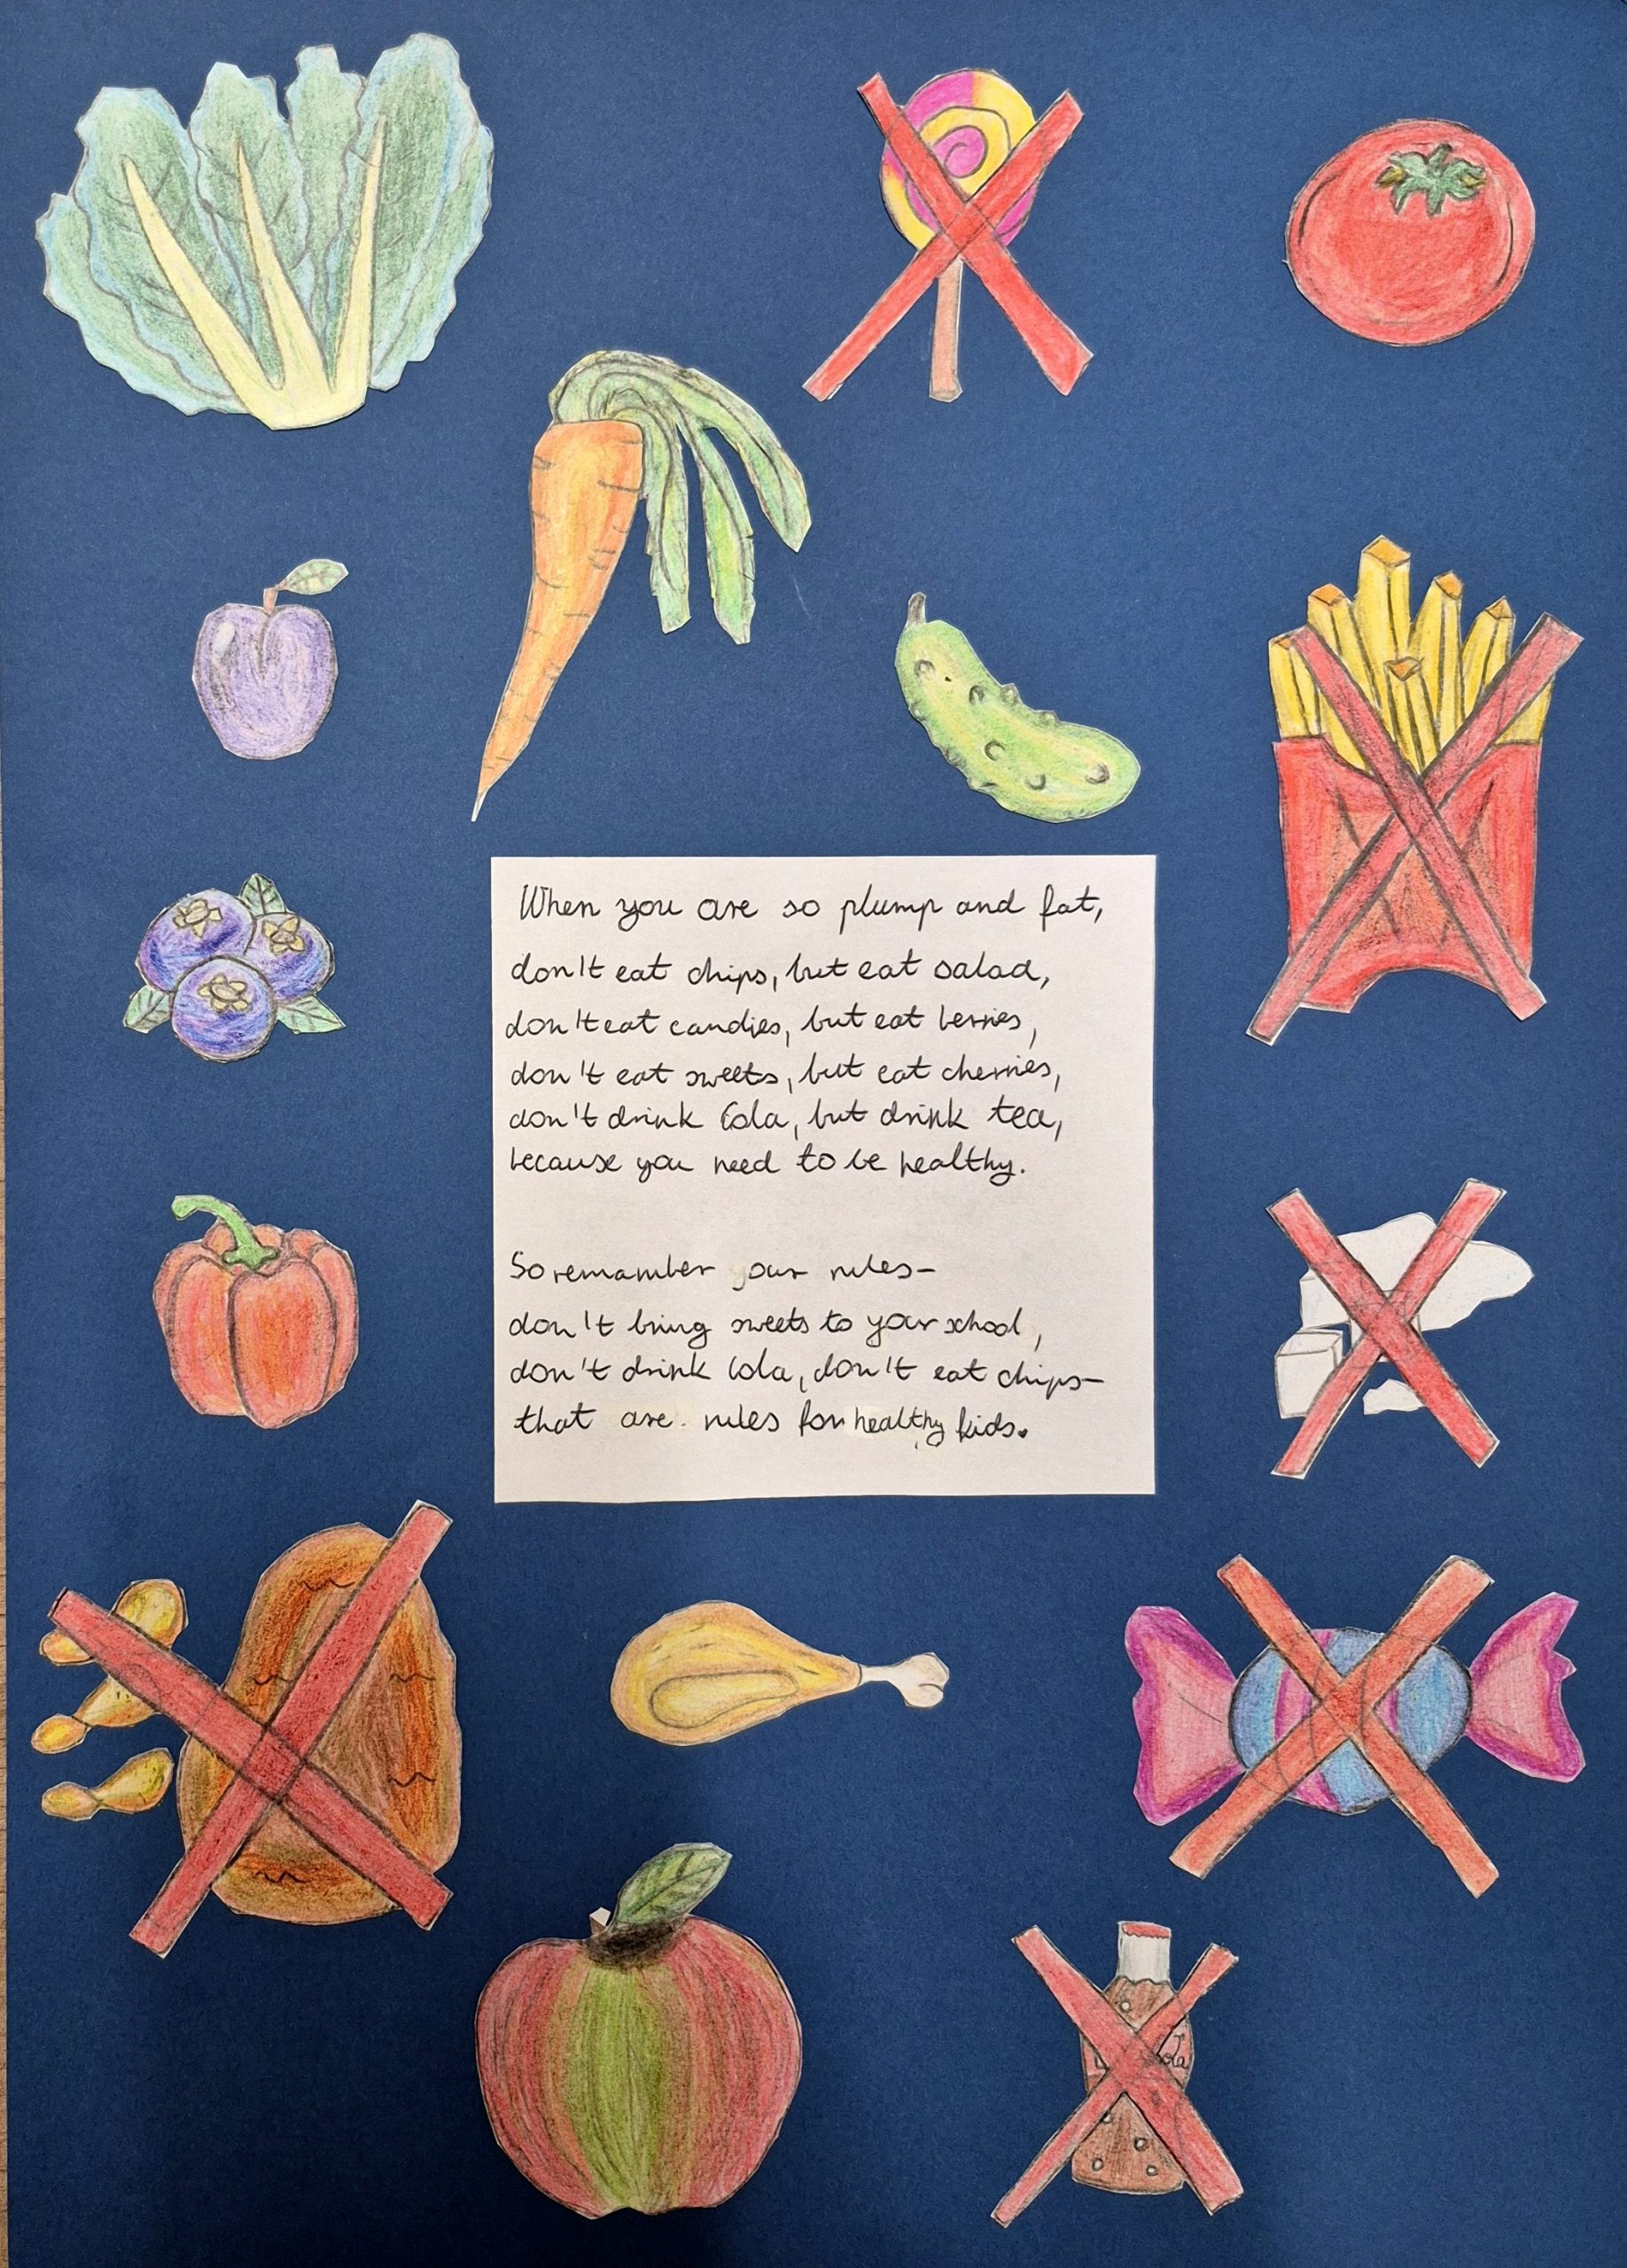 When you are so plump and fat,
don't eat chips, but eat salad,
don't eat candies, but eat berries,
don't eat sweets, but eat cherries,
don't drink Cola, but drink tea,
because you need to be healthy.
So remamber your rules-
don't bring sweets to your school,
don't drink Cola, don't eat chips-
that are rules for healthy kids.
ola